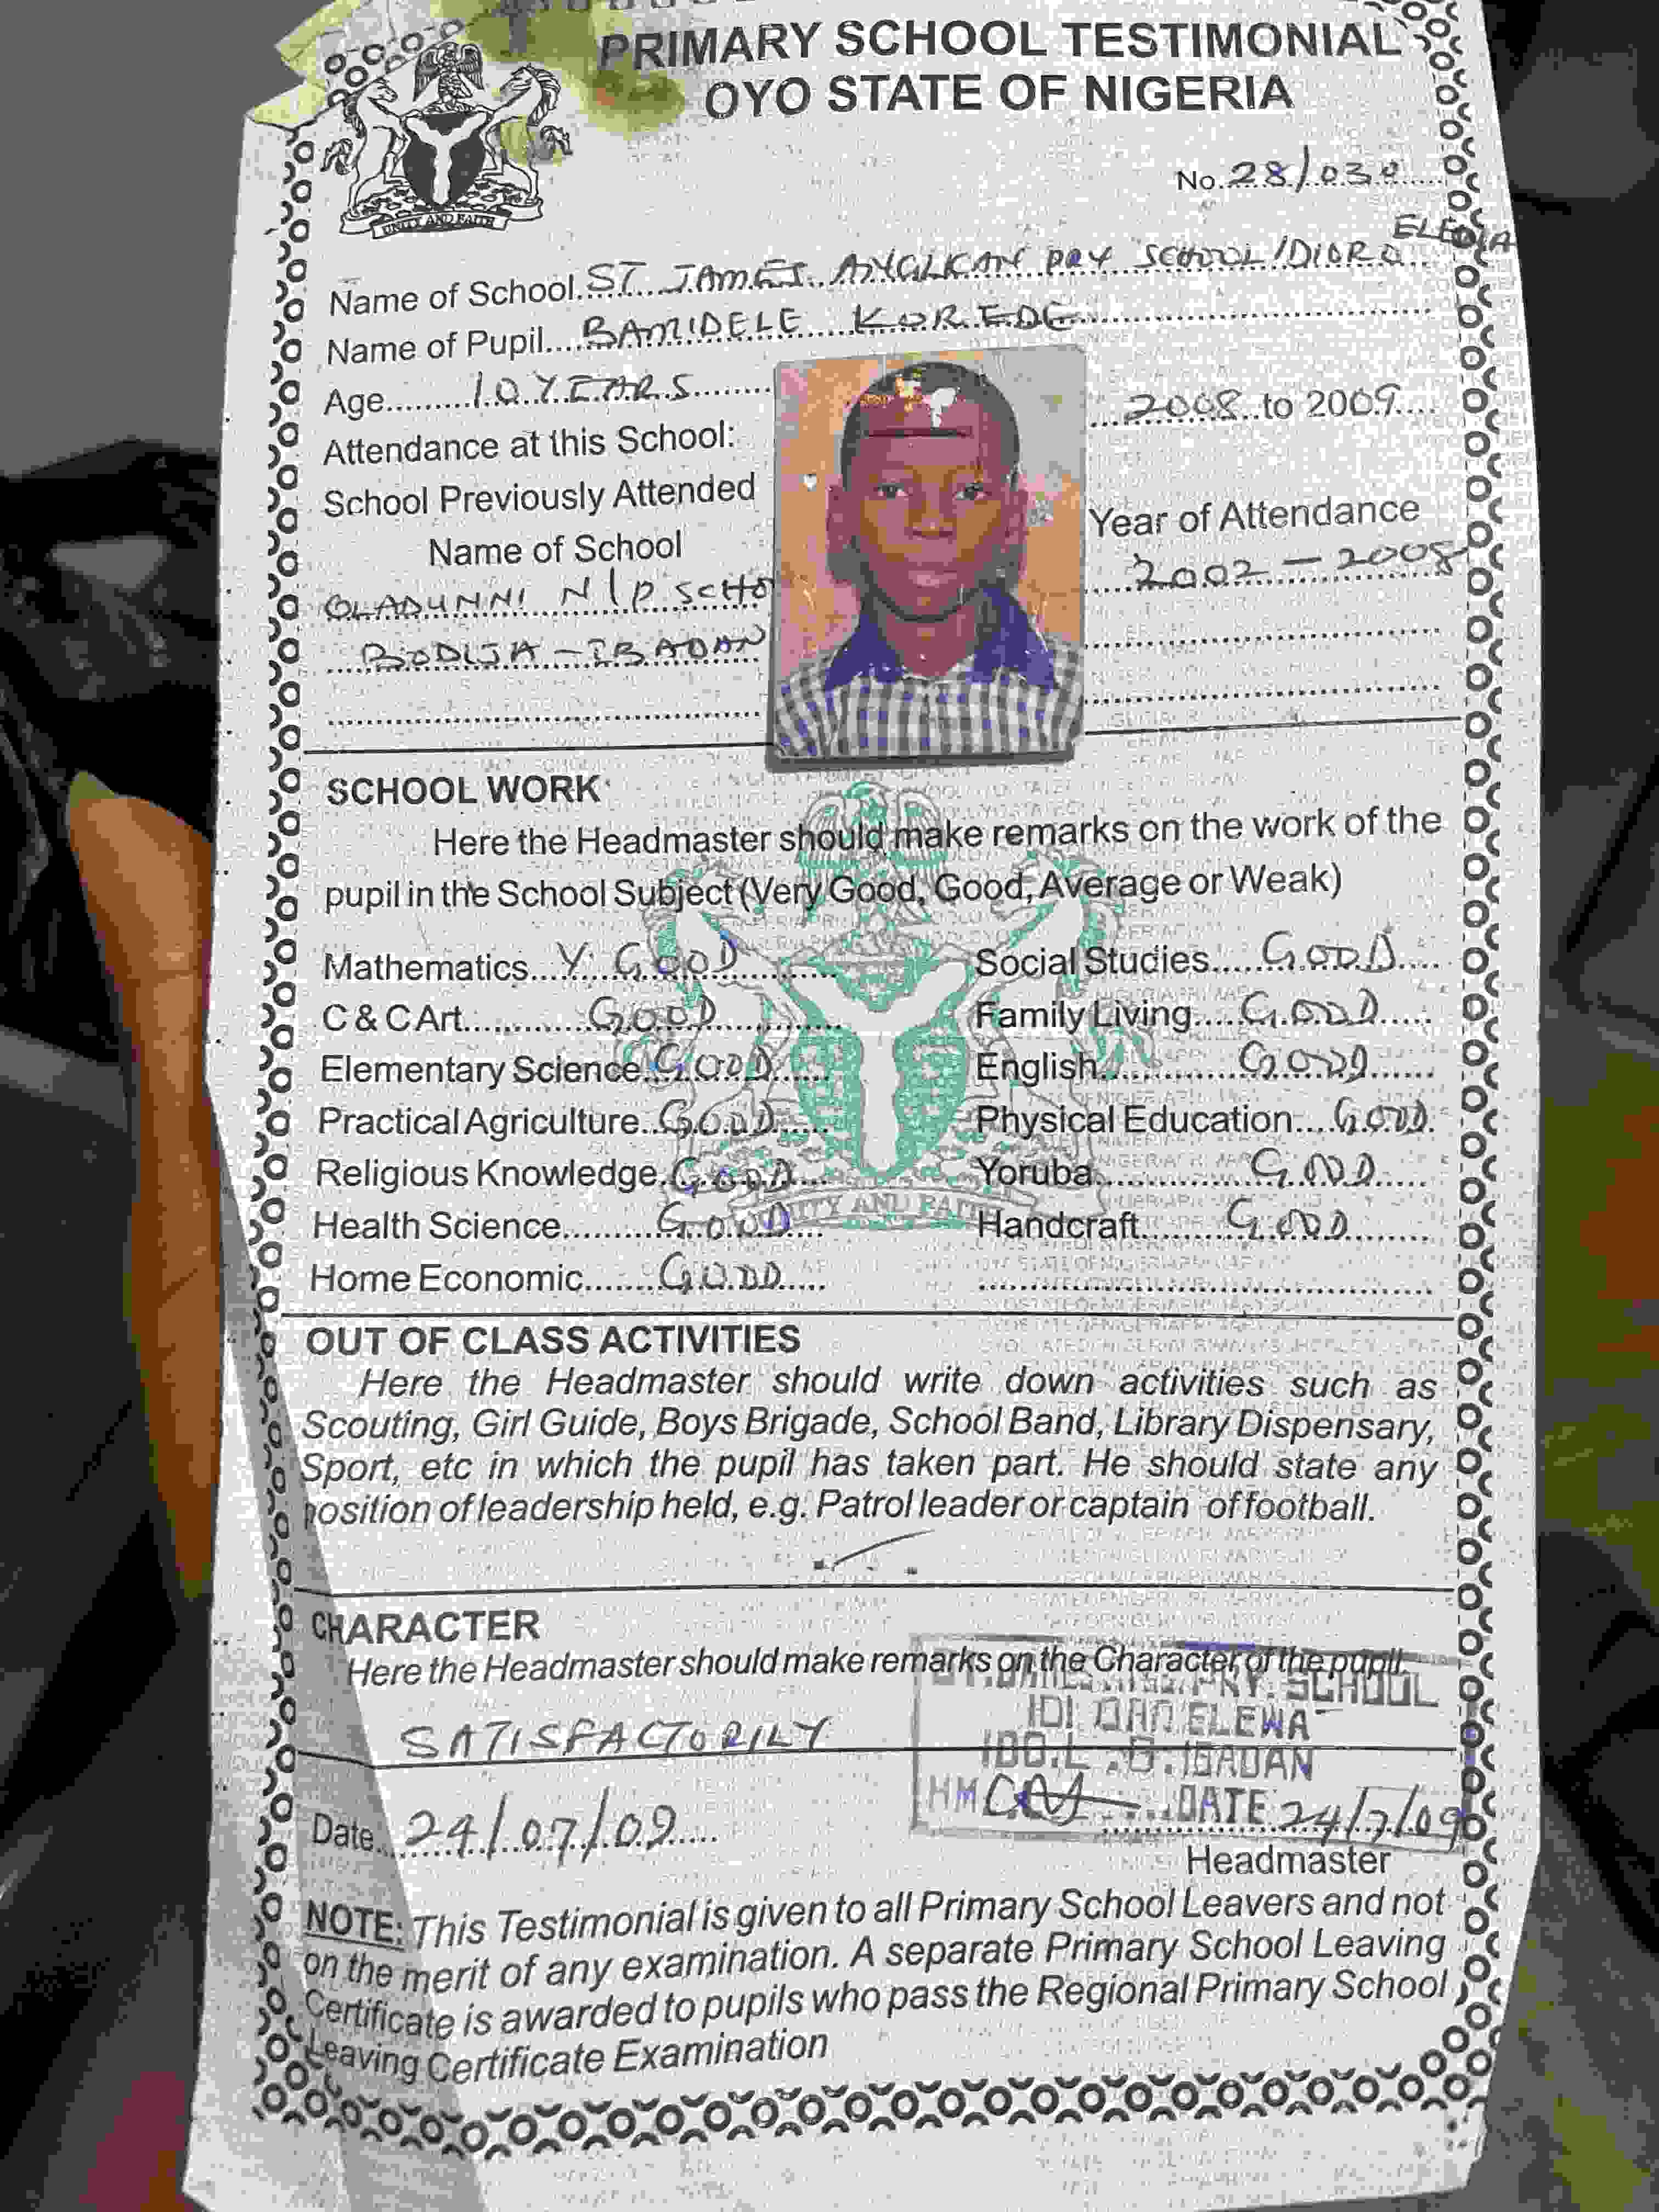 PRIMARY SCHOOL TESTIMONIAL
OYO STATE OF NIGERIA
UNITY AND FAITH
No. 28/030
Name of School. ST JAMES ANGLICAN PRY SCHOOL IDIORO ELEWA
Name of Pupil.... BAMIDELE KOREDE
Age......... 10 YEARS
2008 to 2009
Attendance at this School:
School Previously Attended
Year of Attendance
Name of School
OLADUNNI N/P SCHO
2002 - 2008
BODIJA - IBADAN
SCHOOL WORK
Here the Headmaster should make remarks on the work of the
pupil in the School Subject (Very Good, Good, Average or Weak)
Mathematics... V. GOOD Social Studies...... GOOD
C & C Art.......... GOOD Family Living..... GOOD
Elementary Science GOOD English............ GOOD
Practical Agriculture.. GOOD Physical Education.... GOOD
Religious Knowledge. GOOD Yoruba............ GOOD
Health Science......... GOOD Handcraft........ GOOD
Home Economic....... GOOD
UNITY AND FAITH
OUT OF CLASS ACTIVITIES
Here the Headmaster should write down activities such as
Scouting, Girl Guide, Boys Brigade, School Band, Library Dispensary,
Sport, etc in which the pupil has taken part. He should state any
position of leadership held, e.g. Patrol leader or captain of football.
CHARACTER
Here the Headmaster should make remarks on the Character of the pupil.
SATISFACTORILY
ST. JAMES ANG. PRY. SCHOOL
IDI ORO ELEWA
IDO.L .G. IBADAN
HM DATE 24/7/09
Date.. 24/07/09
Headmaster
NOTE: This Testimonial is given to all Primary School Leavers and not
on the merit of any examination. A separate Primary School Leaving
Certificate is awarded to pupils who pass the Regional Primary School
Leaving Certificate Examination